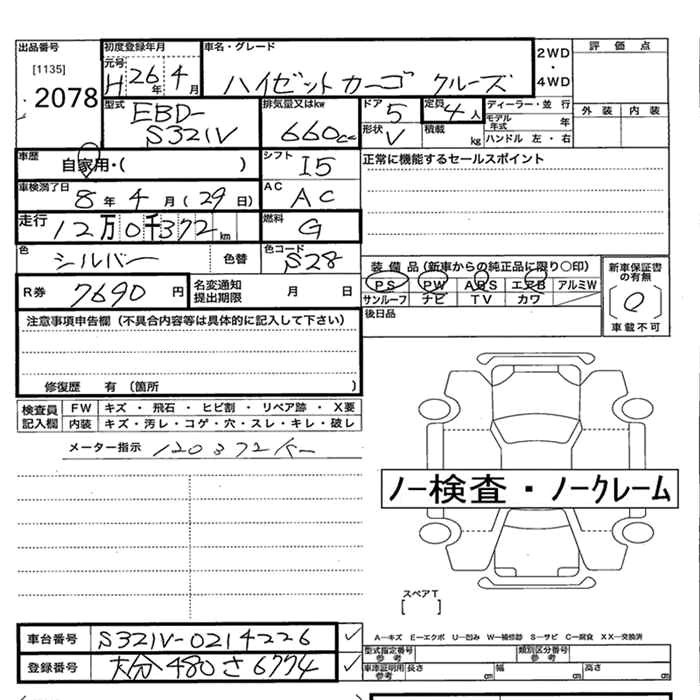 出品番号 初度登録年月 車名・グレード 2WD・4WD 評価点
[1135] 2078 元号 H 26年 4月 ハイゼットカーゴ クルーズ
型式 EBD-S321V 排気量又はkw 660cc ドア 5 定員 4人 ディーラー・並行
形状 V 積載 kg モデル年式 年 外装 内装
ハンドル 左・右
車歴 自家用・( ) シフト I5 正常に機能するセールスポイント
車検満了日 8年 4月 (29日) AC AC
走行 12万0千372km 燃料 G
色 シルバー 色替 色コード S28
装備品(新車からの純正品に限り〇印) 新車保証書の有無
PS PW ABS エアB アルミW
サンルーフ ナビ TV カワ 車載不可
R券 7690円 名変通知提出期限 月 日
後日品
注意事項申告欄(不具合内容等は具体的に記入して下さい)
修復歴 有(箇所 )
検査員記入欄 FW キズ・飛石・ヒビ割・リペア跡・X要
内装 キズ・汚レ・コゲ・穴・スレ・キレ・破レ
メーター指示 120372
ノー検査・ノークレーム
スペアT
[ ]
車台番号 S321V-0214226
登録番号 大分480さ6774
A-キズ E-エクボ U-凹み W-補修跡 S-サビ C-腐食 XX-交換済
型式指定番号参考 類別区分番号参考
車庫証明用参考 長さ cm 幅 cm 高さ cm